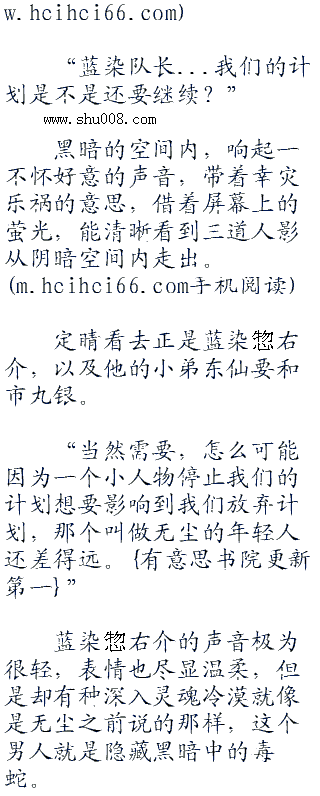 w.hcihci66.com)
“蓝染队长...我们的计
划是不是还要继续？”
www.shu008.com
黑暗的空间内，响起一
不怀好意的声音，带着幸灾
乐祸的意思，借着屏幕上的
萤光，能清晰看到三道人影
从阴暗空间内走出。
(m.hcihci66.com手机阅读)
定睛看去正是蓝染惣右
介，以及他的小弟东仙要和
市丸银。
“当然需要，怎么可能
因为一个小人物停止我们的
计划想要影响到我们放弃计
划，那个叫做无尘的年轻人
还差得远。{有意思书院更新
第一}”
蓝染惣右介的声音极为
很轻，表情也尽显温柔，但
是却有种深入灵魂冷漠就像
是无尘之前说的那样，这个
男人就是隐藏黑暗中的毒
蛇。